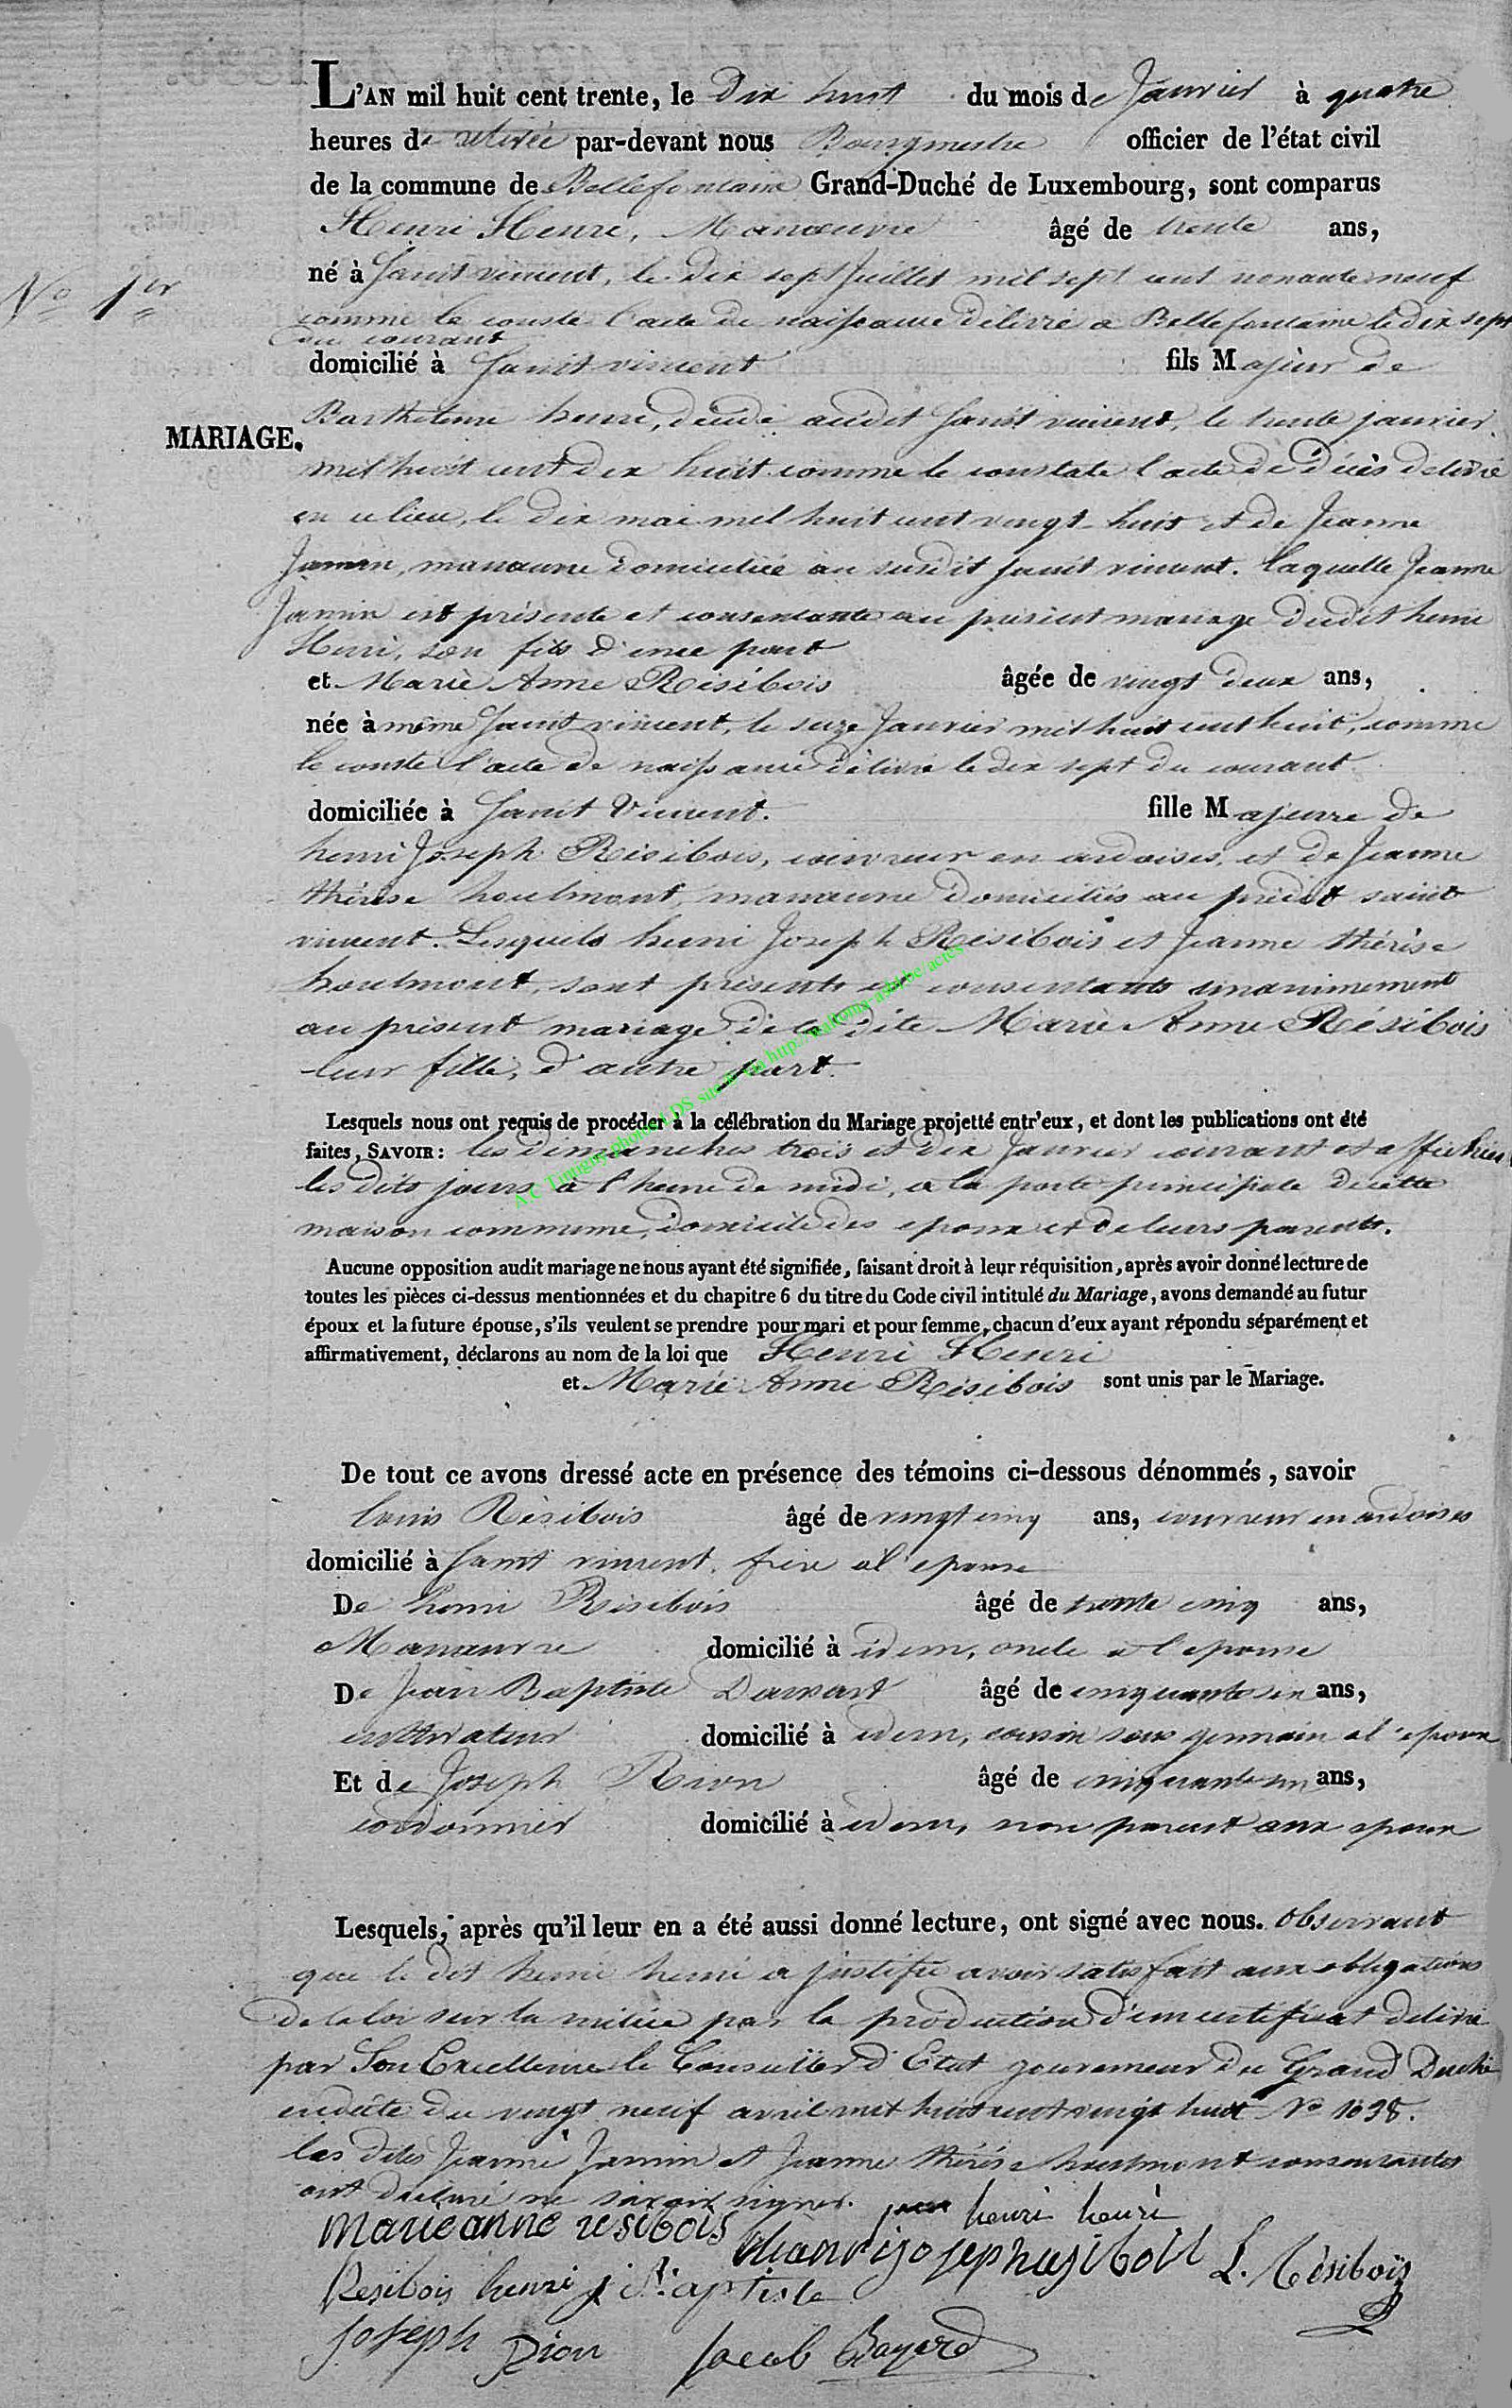 L'AN mil huit cent trente, le Dix huit du mois de Janvier à quatre
heures de relevée par-devant nous Bourgmestre officier de l'état civil
de la commune de Bellefontaine Grand-Duché de Luxembourg, sont comparus
Henri Henri, Manoeuvre âgé de trente ans,
né à Saint vincent, le dix sept Juillet mil sept cent nonante neuf
N° 1er
comme le conste l'acte de naissance délivré a Bellefontaine le dix sept
du courant
domicilié à Saint vincent fils Majeur de
Barthelemi henri, décédé audit Saint vincent, le trente janvier
MARIAGE.
mil huit cent dix huit comme le constate l'acte de décès delivré
en ce lieu, le dix mai mil huit cent vingt huit et de Jeanne
Jamin, manœuvre domiciliée au susdit saint vincent. laquelle Jeanne
Jamin est présente et consentante au présent mariage dudit henri
Henri, son fils d'une part
et Marie Anne Résibois âgée de vingt deux ans,
née à même Saint vincent, le seize Janvier mil huit cent huit, comme
le conste l'acte de naissance délivré le dix sept du courant
domiciliée à Saint Vincent. fille Majeure de
henri Joseph Résibois, couvreur en ardoises, et de Jeanne
thérèse houlmont, manœuvre domiciliés au prédit saint
vincent. Lesquels henri Joseph Résibois et Jeanne thérèse
houlmont, sont présents et consentants unanimement
au présent mariage de la dite Marie Anne Résibois
leur fille, d'autre part.
Lesquels nous ont requis de procéder à la célébration du Mariage projetté entr'eux, et dont les publications ont été
faites, SAVOIR: les dimanches trois et dix Janvier courant et affichées
les dits jours à l'heure de midi, a la porte principale de cette
maison commune, domicile des epoux et de leurs parents.
Aucune opposition audit mariage ne nous ayant été signifiée, faisant droit à leur réquisition, après avoir donné lecture de
toutes les pièces ci-dessus mentionnées et du chapitre 6 du titre du Code civil intitulé du Mariage, avons demandé au futur
époux et la future épouse, s'ils veulent se prendre pour mari et pour femme, chacun d'eux ayant répondu séparément et
affirmativement, déclarons au nom de la loi que Henri Henri
et Marie Anne Résibois sont unis par le Mariage.
De tout ce avons dressé acte en présence des témoins ci-dessous dénommés, savoir
louis Résibois âgé de vingt cinq ans, couvreur en ardoises
domicilié à Saint vincent, frere a l'epouse
De henri Résibois âgé de trente cinq ans,
Manœuvre domicilié à idem, oncle a l'epouse
De Jean Baptiste âgé de cinquante six ans,
cultivateur domicilié à idem, cousin sous germain a l'epoux
Et de Joseph Dion âgé de cinquante ans,
cordonnier domicilié à idem, non parent aux epoux
Lesquels, après qu'il leur en a été aussi donné lecture, ont signé avec nous. Observant
que le dit henri henri a justifié avoir satisfait aux obligations
de la loi sur la milice par la production d'un certificat delivré
par Son Excellence le Conseiller d'Etat gouverneur du Grand Duché
en date du vingt neuf avril mil huit cent vingt huit N° 1038.
les dites Jeanne Jamin et Jeanne thérèse houlmont consentantes
ont declaré ne savoir signer.
henri henri
marie anne resibois
hanri joseph resiboit L. Résibois
Resibois henri j Baptiste
Joseph Dion Jacob Bayard
A.C. Tintigny photos LDS http://wallonia-asbl.be/actes